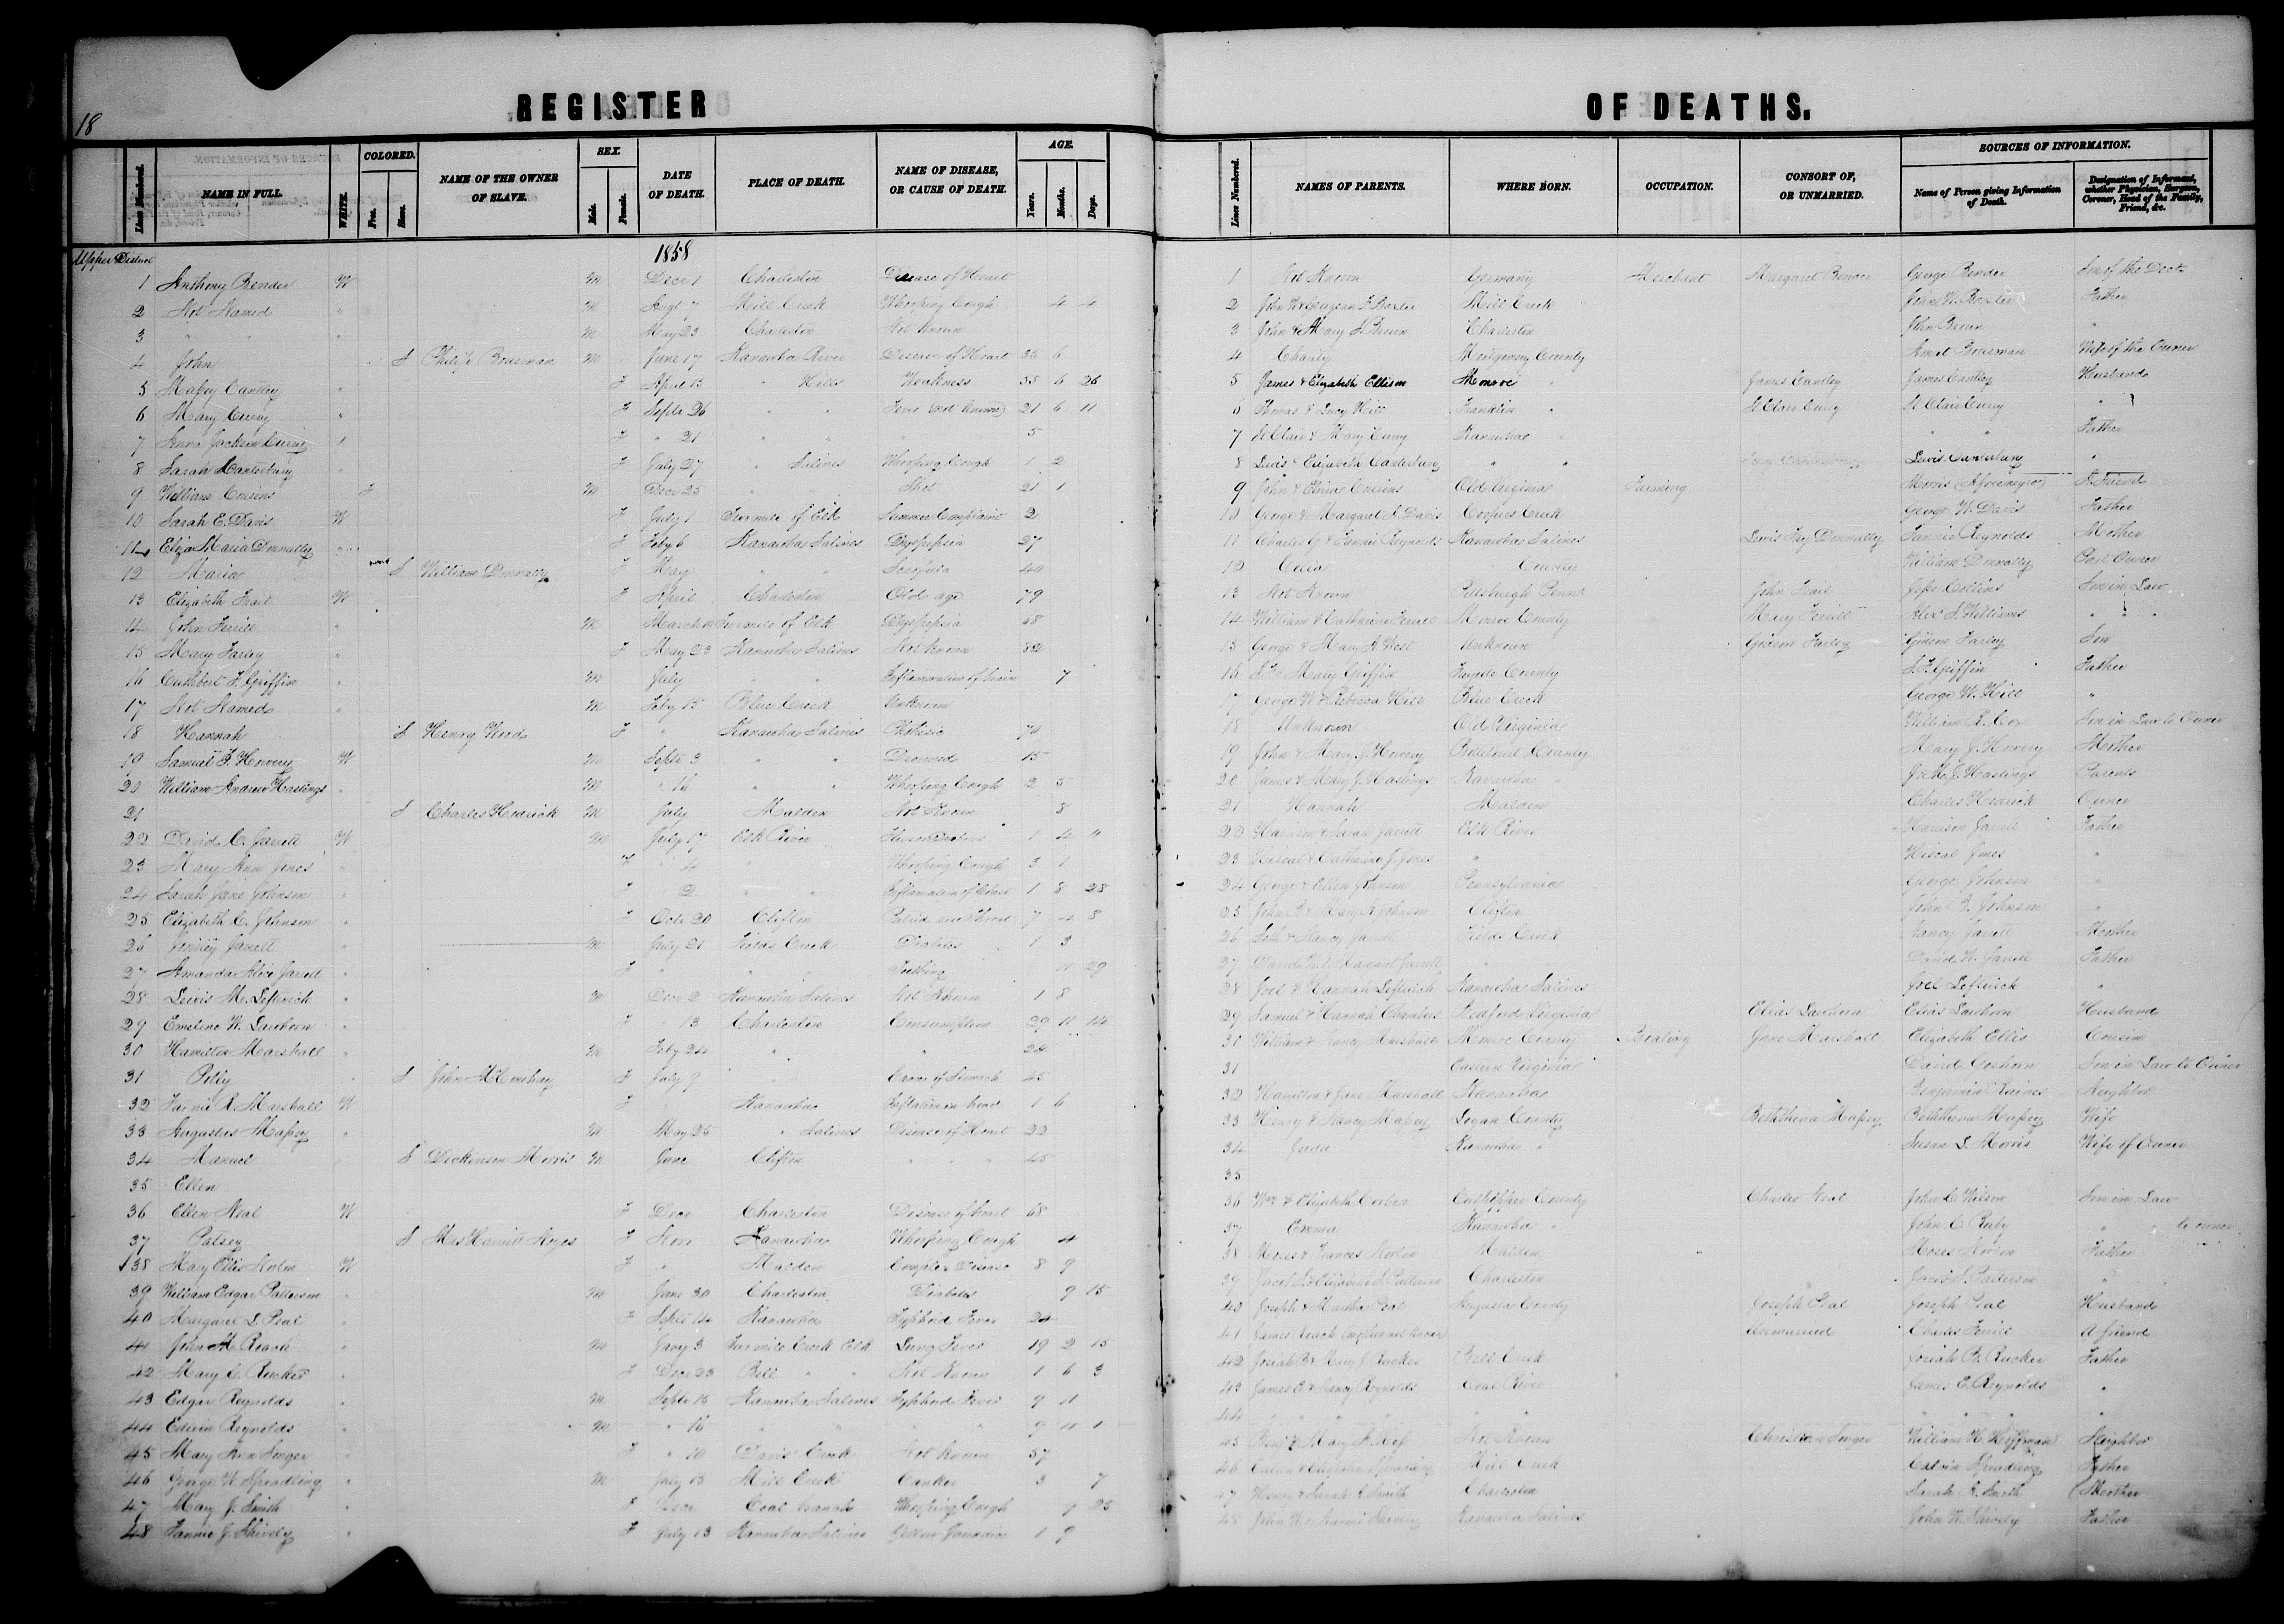 18
REGISTER OF DEATHS.
Lines Numbered. NAME IN FULL. WHITE. COLORED. Free. Slave. NAME OF THE OWNER OF SLAVE. SEX. Male. Female. DATE OF DEATH. PLACE OF DEATH. NAME OF DISEASE, OR CAUSE OF DEATH. AGE. Years. Months. Days. Lines Numbered. NAMES OF PARENTS. WHERE BORN. OCCUPATION. CONSORT OF, OR UNMARRIED. SOURCES OF INFORMATION. Name of Person giving Information of Death. Designation of Informant, whether Physician, Surgeon, Coroner, Head of the Family, Friend, &c.
Upper District 1858
1 Anthony Bender W M Decr 1 Charleston Disease of Heart 1 Not Known Germany Merchant Margaret Bender George Bender Son of the Decd
2 Not Named " M Augt 7 Mill Creek Whooping Cough 4 2 Mill Creek John W. Father
3 " " " M May 23 Charleston Not Known 3 John & Mary Brown Charleston John Brown "
4 John S Philip M June 17 Kanawha River Disease of Heart 35 6 4 Charity Montgomery County Wife of the Owner
5 Massey Cantley " F April 13 " Hills Weakness 55 6 26 5 James & Elizabeth Ellison Monroe " James Cantley James Cantley Husband
6 Mary Curry " F Septr 26 " " Fever (not known) 21 6 11 6 Thomas & Lucy Hill Franklin " St Clair Curry St Clair Curry "
7 Anna Jackson Curry " F " 21 " " " 5 7 St Clair & Mary Curry Kanawha " " " Father
8 Sarah Canterbury " F July 27 " Salines Whooping Cough 1 2 8 Lewis & Elizabeth Canterbury " " Lewis Canterbury "
9 William Cousins F M Decr 25 " " Shot 21 1 9 John & Cousins Old Virginia Farming Morris (A free negro) A Friend
10 Sarah E. Davis W F July 1 Two mile of Elk Summer Complaint 2 10 George & Margaret Davis Coopers Creek George W. Davis Father
11 Eliza Maria Donnally " F Feby 6 Kanawha Salines Dyspepsia 27 11 Charles G & Fannie Reynolds Kanawha Salines Lewis Donnally Fannie Reynolds Mother
12 Maria S William Donnally F May " " Scrofula 40 12 " County William Donnally Part Owner
13 Elizabeth Trail W F April Charleston Old age 79 13 Not Known Pittsburgh Penna John Trail Jesse Collins Son in Law
14 John Ferrill " M March Two mile of Elk Dyspepsia 68 14 William & Catharine Monroe County Mary Ferrill Alex Williams " " "
15 Mary Farley " F May 23 Kanawha Salines Not Known 82 15 George & Mary West Unknown Gideon Farley Gideon Farley Son
16 Cuthbert Griffin " M July " " Inflammation of brain 7 16 Mary Griffin Fayette County Griffin Father
17 Not Named " M Feby 15 Blue Creek Unknown 17 George W & Rebecca Hill Blue Creek George W. Hill "
18 Hannah S Henry F " Kanawha Salines Phthisic 70 18 Unknown Old Virginia William R. Cox Son in Law to Owner
19 Samuel W M Septr 3 " " Drowned 15 19 John & Mary J. Botetourt County Mary J. Mother
20 William Andrew Hastings " M " 16 " " Whooping Cough 2 5 20 James & Mary J. Hastings Kanawha " J. & M. J. Hastings Parents
21 S Charles Hedrick M July Malden Not Known 8 21 Hannah Malden Charles Hedrick Owner
22 David C. Jarrett W M July 17 Elk River 1 4 22 Harrison & Sarah Jarrett Elk River Harrison Jarrett Father
23 Mary Ann Jones " F " 4 " " Whooping Cough 3 1 23 & Catharine J. Jones " Jones "
24 Sarah Jane Johnson " F " 2 " " Inflammation of Chest 1 8 28 24 George & Ellen Johnson Pennsylvania George Johnson "
25 Elizabeth C. Johnson " F Octr 20 Clifton Putrid sore Throat 7 4 8 25 John B & Mary Johnson Clifton John B. Johnson "
26 Jarrett " M July 21 Fields Creek Diabetes 1 3 26 Seth & Nancy Jarrett Fields Creek Nancy Jarrett Mother
27 Amanda Alice Jarrett " F " " " Teething 11 29 27 David W & Margaret Jarrett " David W. Jarrett Father
28 Lewis M. Leftwich " M Decr 2 Kanawha Salines Not Known 1 8 28 Joel & Hannah Leftwich Kanawha Salines Joel Leftwich "
29 Emeline W. Lawhorn " F " 13 Charleston Consumption 29 11 14 29 Samuel & Hannah Chambers Bedford Virginia Elias Lawhorn Elias Lawhorn Husband
30 Hamilton Marshall " M Feby 24 " " 24 30 William & Nancy Marshall Monroe County Boating Jane Marshall Elizabeth Ellis Cousin
31 S John F July 9 " Cancer of Stomach 45 31 Eastern Virginia David Goshorn Son in Law to Owner
32 Fannie Marshall W F " Kanawha head 1 6 32 Hamilton & Jane Marshall Kanawha Benjamin Raines Neighbor
33 Augustus Massey " M May 25 " Salines Disease of Heart 22 33 Henry & Nancy Massey Logan County Massey Massey Wife
34 Manuel S Dickinson Morris M June Clifton " " " 45 34 Juda Kanawha " Susan Morris Wife of Owner
35 Ellen 35
36 Ellen Neal W F Decr Charleston Disease of heart 68 36 Wm & Elizabeth Corbin Culpepper County Charles Neal John C. Wilson Son in Law
37 Patsey S Mrs F Novr Kanawha Whooping Cough 4 37 Emma Kanawha " John C. Ruby " " to owner
38 Mary W F " Malden Complex Disease 8 9 38 Moses & Frances Malden Moses Father
39 William Edgar Patterson " M June 30 Charleston Diabetes 9 15 39 Jacob S. & Elizabeth Patterson Charleston Jacob S. Patterson "
40 Margaret " F Septr 14 Kanawha Typhoid Fever 24 40 Joseph & Martha Augusta County Joseph Joseph Husband
41 John Roach " M Jany 3 Two mile Creek Elk Lung Fever 19 2 15 41 James Roach Unmarried Charles A friend
42 Mary C. Rucker " F Decr 23 Bell " " Not Known 1 6 3 42 Josiah B & Mary J. Rucker Bell Creek Josiah B. Rucker Father
43 Edgar Reynolds " M Septr 15 Kanawha Salines Typhoid Fever 9 11 43 James & Nancy Reynolds Coal River James E. Reynolds "
44 Edwin Reynolds " M " 16 " " " " 9 11 1 44 " " " " " " " " " "
45 Mary Ann " F " 10 Davis Creek Not Known 57 45 & Mary Not Known Christian William H. Hoffman Neighbor
46 George W. Spradling " M July 13 Mill Creek Canker 3 7 46 Calvin & Spradling Mill Creek Calvin Spradling Father
47 Mary J. Smith " F Coal branch Whooping Cough 9 25 47 & Sarah Smith Charleston Sarah Smith Mother
48 Fannie J. Shively " F July 13 Kanawha Salines Yellow Jaundice 1 9 48 John W & Shively Kanawha Salines John W. Shively Father